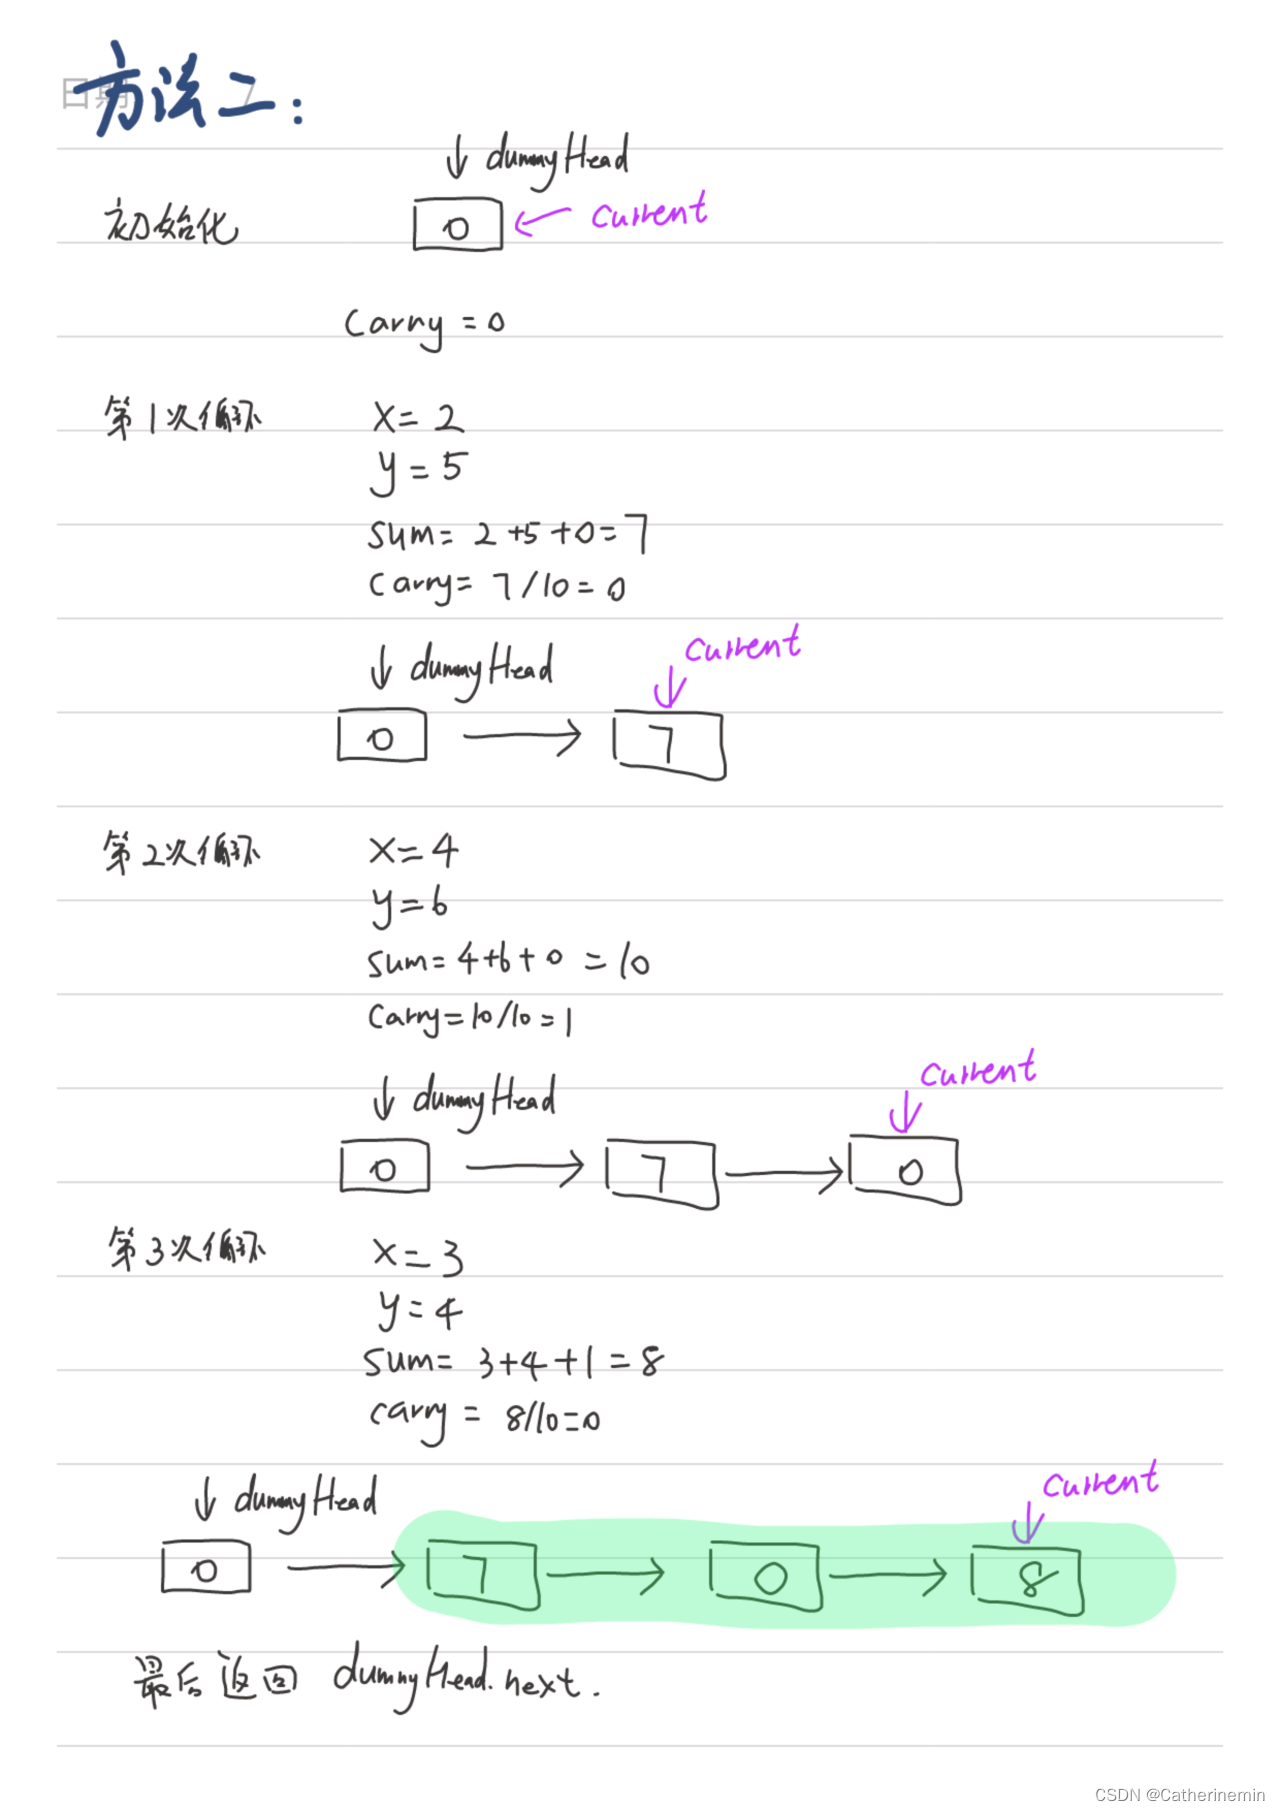 方法二:
↓ dummyHead
初始化
0 ← current
Carry = 0
第1次循环
x = 2
y = 5
sum = 2 + 5 + 0 = 7
Carry = 7 / 10 = 0
current
↓ dummyHead
0 → 7
第2次循环
x = 4
y = 6
sum = 4 + 6 + 0 = 10
Carry = 10 / 10 = 1
current
↓ dummyHead
0 → 7 → 0
第3次循环
x = 3
y = 4
sum = 3 + 4 + 1 = 8
carry = 8 / 10 = 0
current
↓ dummyHead
0 → 7 → 0 → 8
最后返回 dummyHead.next.
CSDN @Catherinemin